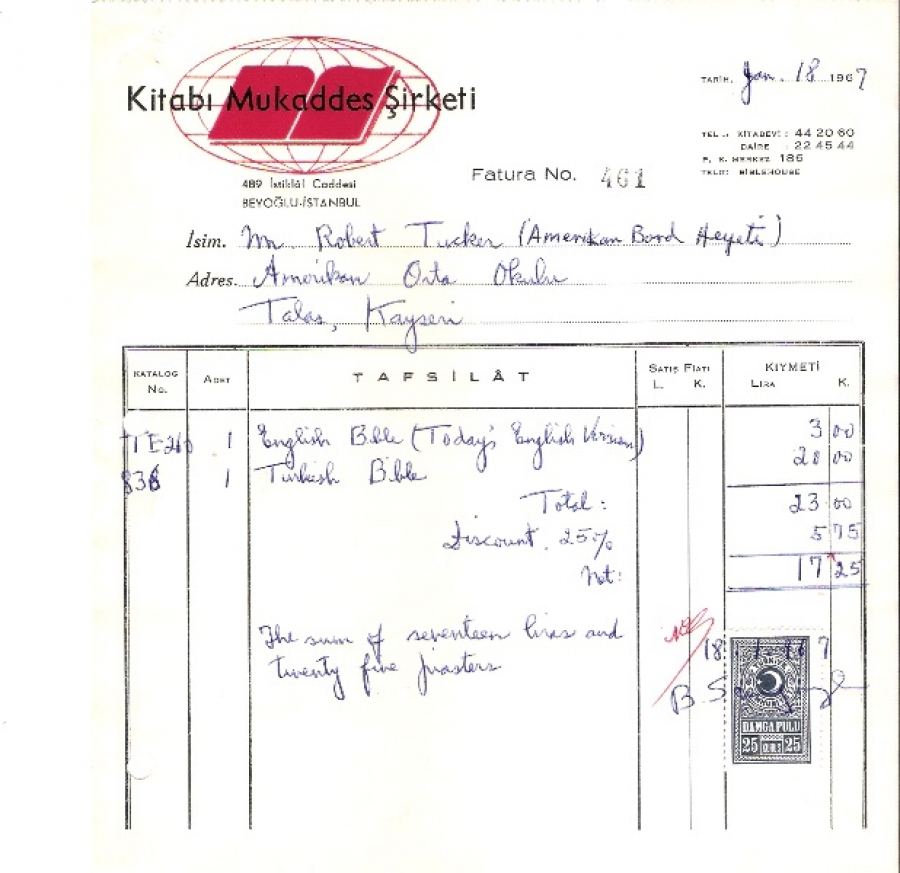 Kitabı Mukaddes Şirketi
TARİH. Jan. 18 1967
TEL.: KİTABEVİ: 44 20 60
DAİRE : 22 45 44
P. K. MERKEZ 186
TELG: BIBLEHOUSE
489 İstiklâl Caddesi
BEYOĞLU-İSTANBUL
Fatura No. 461
İsim. Mr Robert Tucker (Amerikan Bord Heyeti)
Adres. Amerikan Orta Okulu
Talas, Kayseri
KATALOG No. ADET TAFSİLÂT SATIŞ FİATI L. K. KIYMETİ LİRA K.
1 English Bible (Today's English Version) 3 00
838 1 Turkish Bible 20 00
Total: 23 00
Discount. 25% 5 75
Net: 17 25
The sum of seventeen liras and
twenty five piasters
18
B.
TÜRKİYE
DAMGA PULU
25 KURUŞ 25